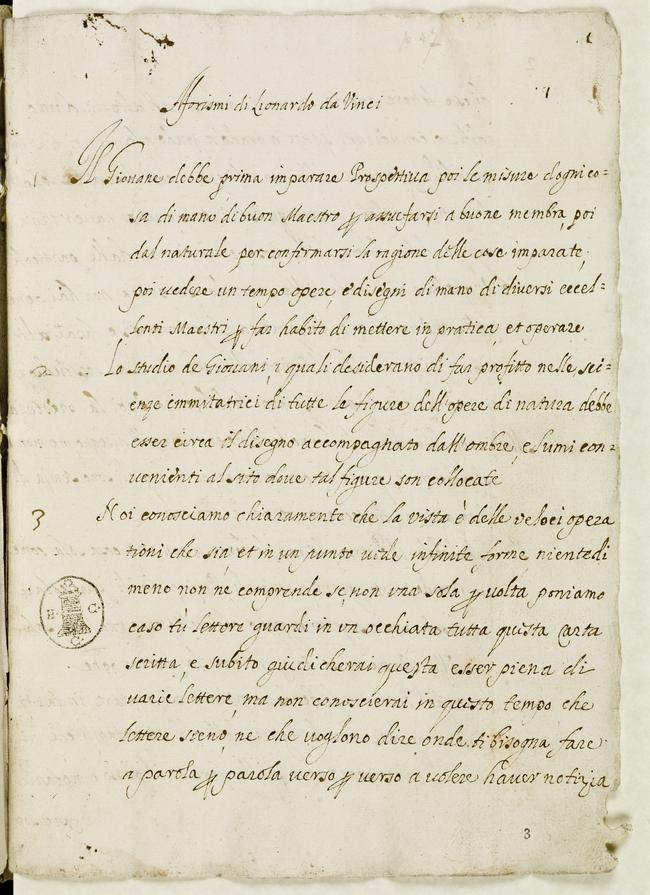 1
Aforismi di Lionardo da Vinci
1
Il Giovane debbe prima imparare Prospettiva poi le misure d'ogni co=
sa di mano di buon Maestro p assuefarsi a buone membra, poi
dal naturale per confirmarsi la ragione delle cose imparate,
poi vedere un tempo opere, e disegni di mano di diversi eccel-
lenti Maestri p far habito di mettere in pratica, et operare
2 Lo studio de Giovani, i quali desiderano di far profitto nelle sci=
enze immitatrici di tutte le figure dell'opere di natura debbe
esser circa il disegno accompagnato dall'ombre, e lumi con=
venienti al sito dove tal figure son collocate
3 Noi conosciamo chiaramente che la vista è delle veloci opera
tioni che sia et in un punto vede infinite forme niente di
meno non ne comprende se non una sola p volta poniamo
caso tù lettore guardi in un occhiata tutta questa carta
scritta, e subito giudicherai questa esser piena di
varie lettere, ma non conoscierai in questo tempo che
lettere sieno, ne che voglono dire onde ti bisogna fare
a parola p parola verso p verso a volere haver notizia
B. C.
C.
3